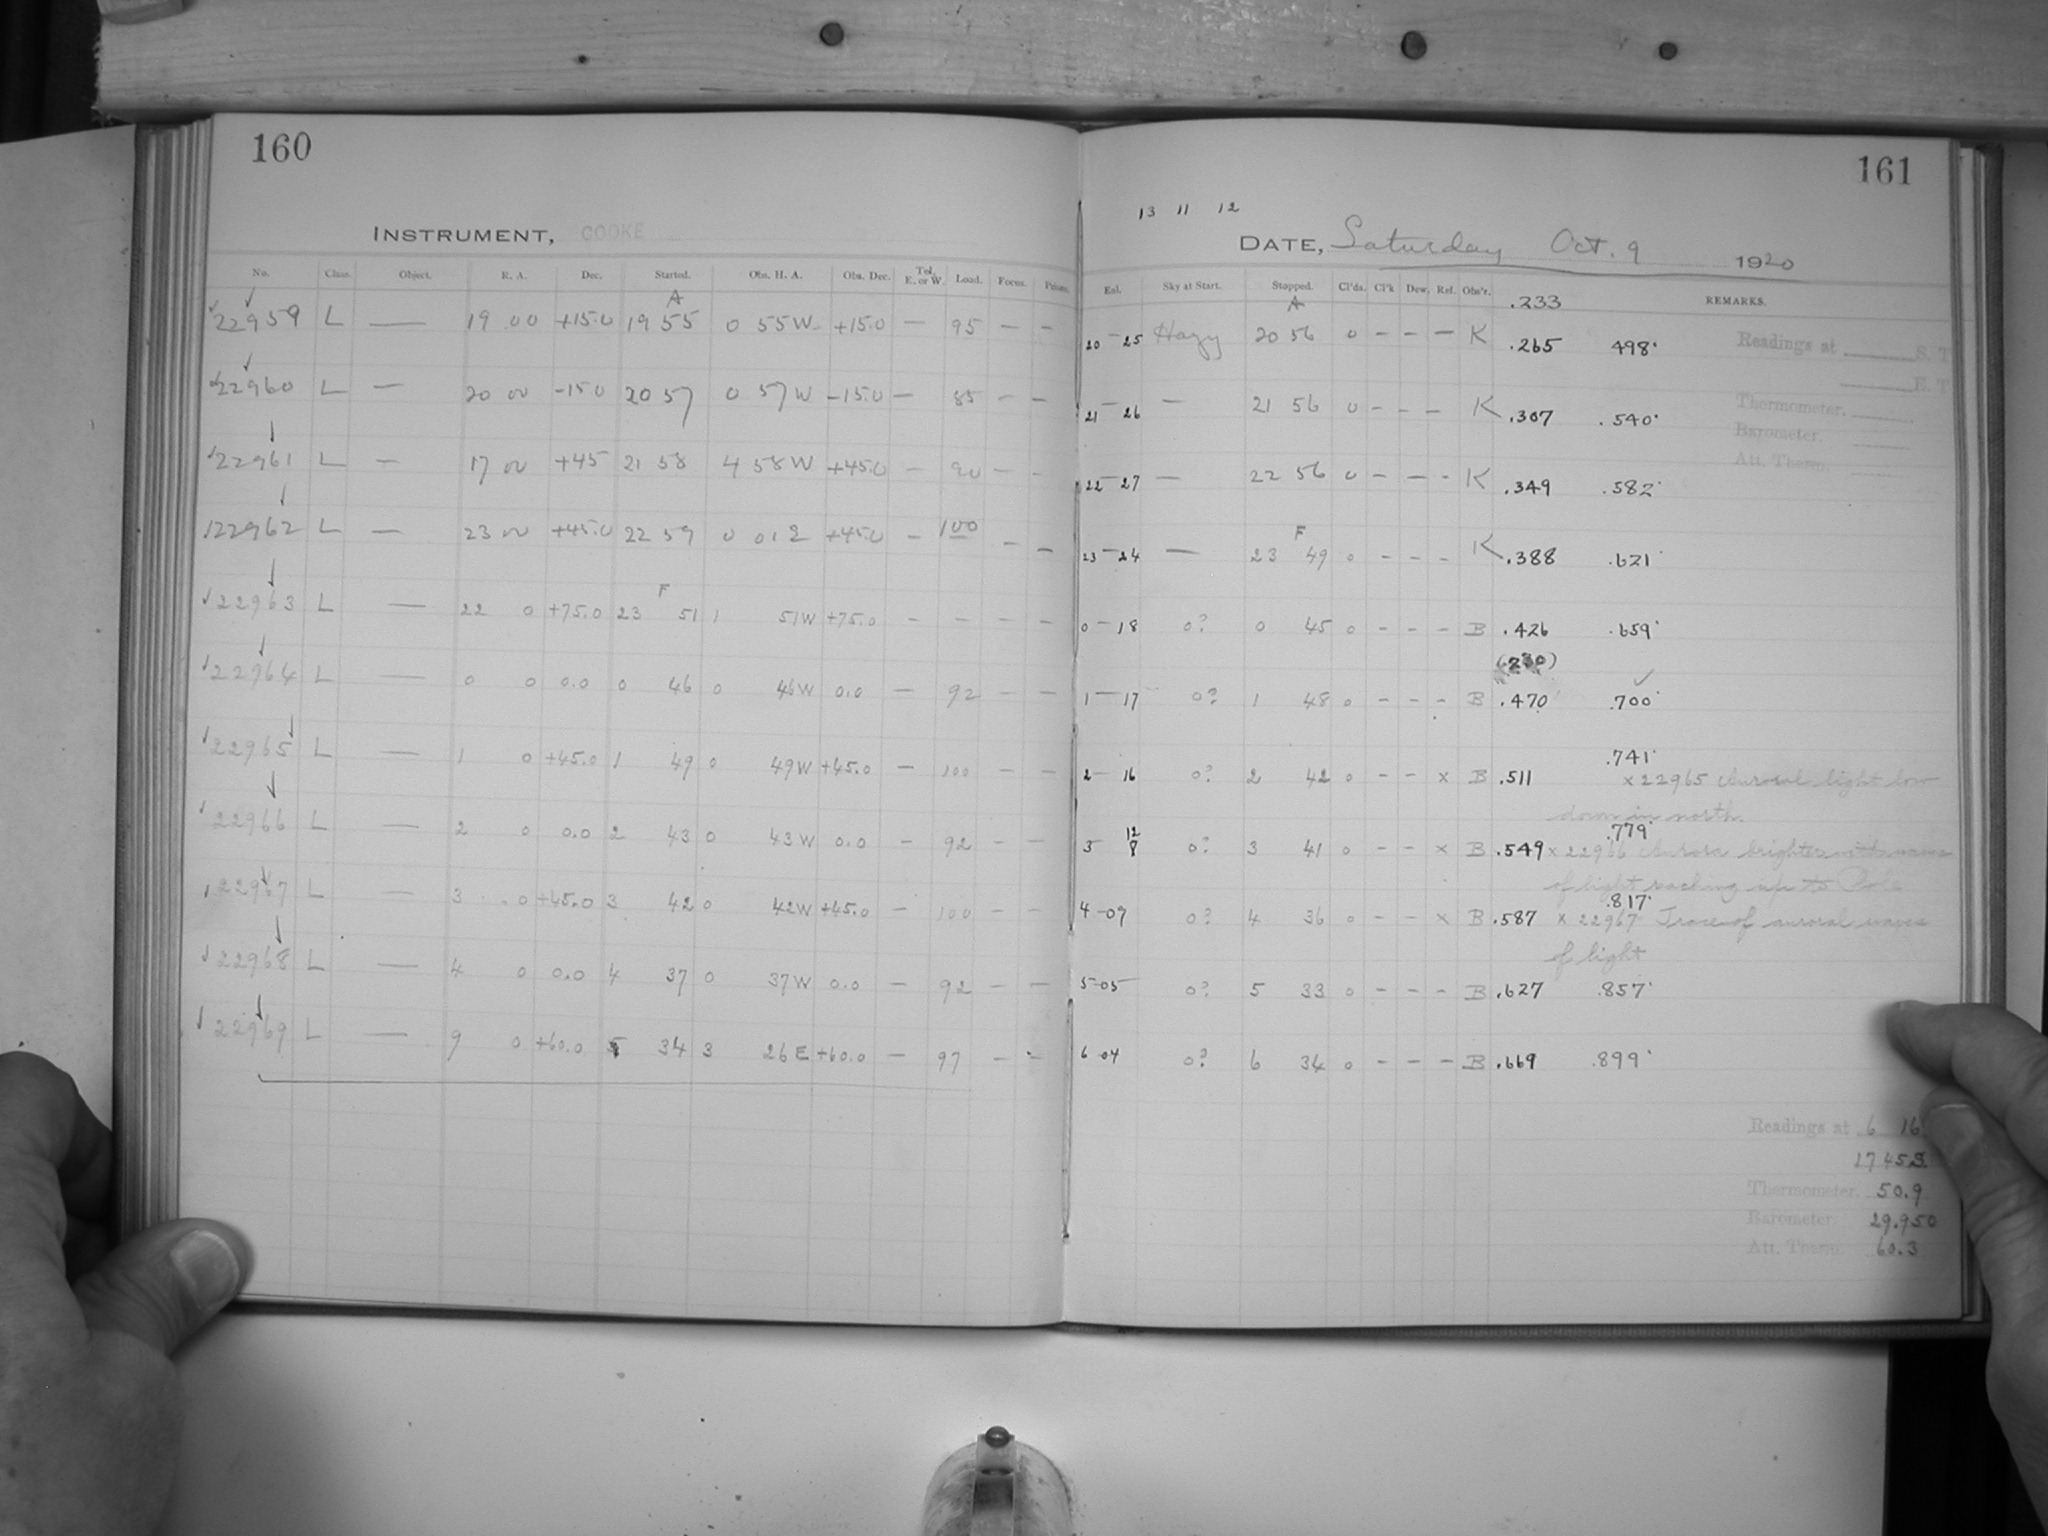 160
INSTRUMENT, COOKE
No. Class. Object. R. A. Dec. Started. Obs. H. A. Obs. Dec. Tel. E. or W. Load. Focus. Prisms.
A
22959 L — 19 00 +15.0 19 55 0 55 W +15.0 — 95 — —
22960 L — 20 00 -15.0 20 57 0 57 W -15.0 — 85 — —
22961 L — 17 00 +45 21 58 4 58 W +45.0 — 90 — —
22962 L — 23 00 +45.0 22 59 0 01 E +45.0 — 100 — —
F
22963 L — 22 0 +75.0 23 51 1 51 W +75.0 — — — —
22964 L — 0 0 0.0 0 46 0 46 W 0.0 — 92 — —
22965 L — 1 0 +45.0 1 49 0 49 W +45.0 — 100 — —
22966 L — 2 0 0.0 2 43 0 43 W 0.0 — 92 — —
22967 L — 3 0 +45.0 3 42 0 42 W +45.0 — 100 — —
22968 L — 4 0 0.0 4 37 0 37 W 0.0 — 92 — —
22969 L — 9 0 +60.0 5 34 3 26 E +60.0 — 97 — —
161
13 11 12
DATE, Saturday Oct. 9 1920
Ent. Sky at Start. Stopped. Cl'ds. Cl'k Dew. Ref. Obs'r. .233 REMARKS.
A
20—25 Hazy 20 56 0 — — — K .265 498
Readings at S. T.
E. T.
21—26 — 21 56 0 — — — K .307 .540
Thermometer.
Barometer.
Att. Therm.
22—27 — 22 56 0 — — — K .349 .582
F
23—24 — 23 49 0 — — — K .388 .621
0—18 0? 0 45 0 — — — B .426 .659
(.230)
1—17 0? 1 48 0 — — — B .470 .700
.741
2—16 0? 2 42 0 — — x B .511 x 22965 Auroral light low
down in north.
.779
3 12 8 0? 3 41 0 — — x B .549 x 22966 Aurora brighter with waves
of light reaching up to Pole
.817
4—09 0? 4 36 0 — — x B .587 x 22967 Trace of auroral waves
of light
5—05 0? 5 33 0 — — — B .627 .857
6 04 0? 6 34 0 — — — B .669 .899
Readings at 6 16
17 45 S.
Thermometer. 50.9
Barometer. 29.950
Att. Therm. 60.3